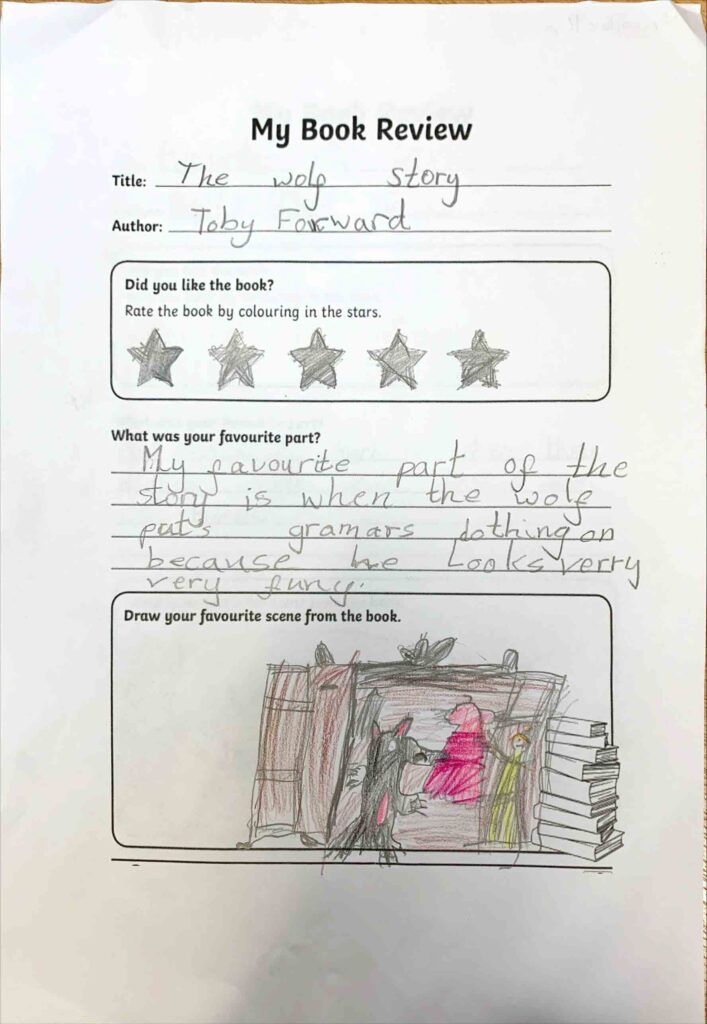 My Book Review
Title: The wolf story
Author: Toby Forward
Did you like the book?
Rate the book by colouring in the stars.
What was your favourite part?
My favourite part of the
story is when the wolf
puts gramars clothing on
because he Looks verry
very funy.
Draw your favourite scene from the book.